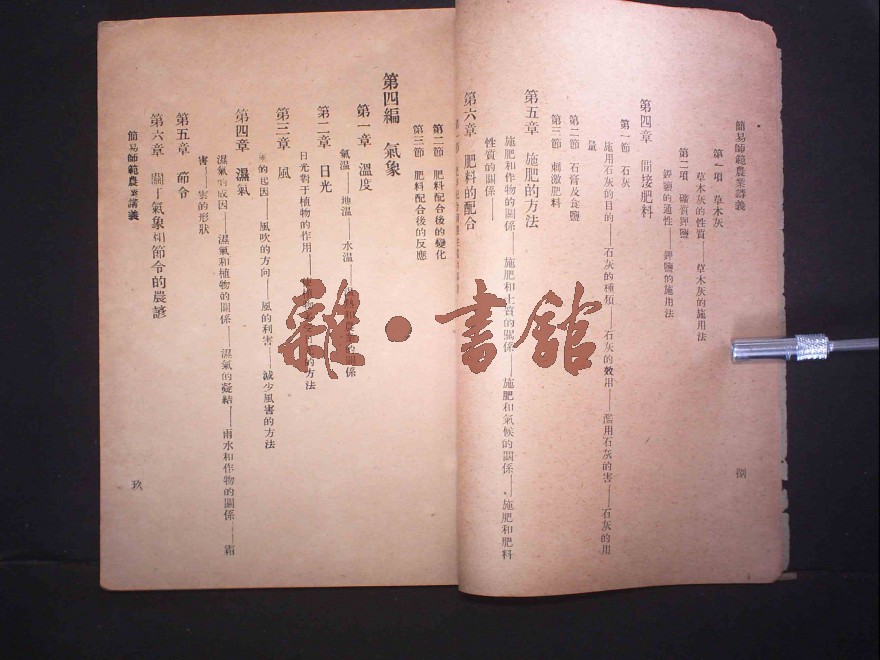 簡易師範農業講義
第一項 草木灰
草木灰的性質——草木灰的施用法
第二項 礦質鉀鹽
鉀鹽的通性——鉀鹽的施用法
第四章 間接肥料
第一節 石灰
施用石灰的目的——石灰的種類——石灰的效用——濫用石灰的害——石灰的用
量
第二節 石膏及食鹽
第三節 刺激肥料
第五章 施肥的方法
施肥和作物的關係——施肥和土質的關係——施肥和氣候的關係——施肥和肥料
性質的關係——
第六章 肥料的配合
捌
第二節 肥料配合後的變化
第三節 肥料配合後的反應
第四編 氣象
第一章 溫度
氣溫——地溫——水溫——關係
第二章 日光
日光對于植物的作用——的方法
第三章 風
的起因——風吹的方向——風的利害——減少風害的方法
第四章 濕氣
濕氣的成因——濕氣和植物的關係——濕氣的凝結——雨水和作物的關係——霜
害——雲的形狀
第五章 節令
第六章 關于氣象和節令的農諺
簡易師範農業講義
玖
雜·書館